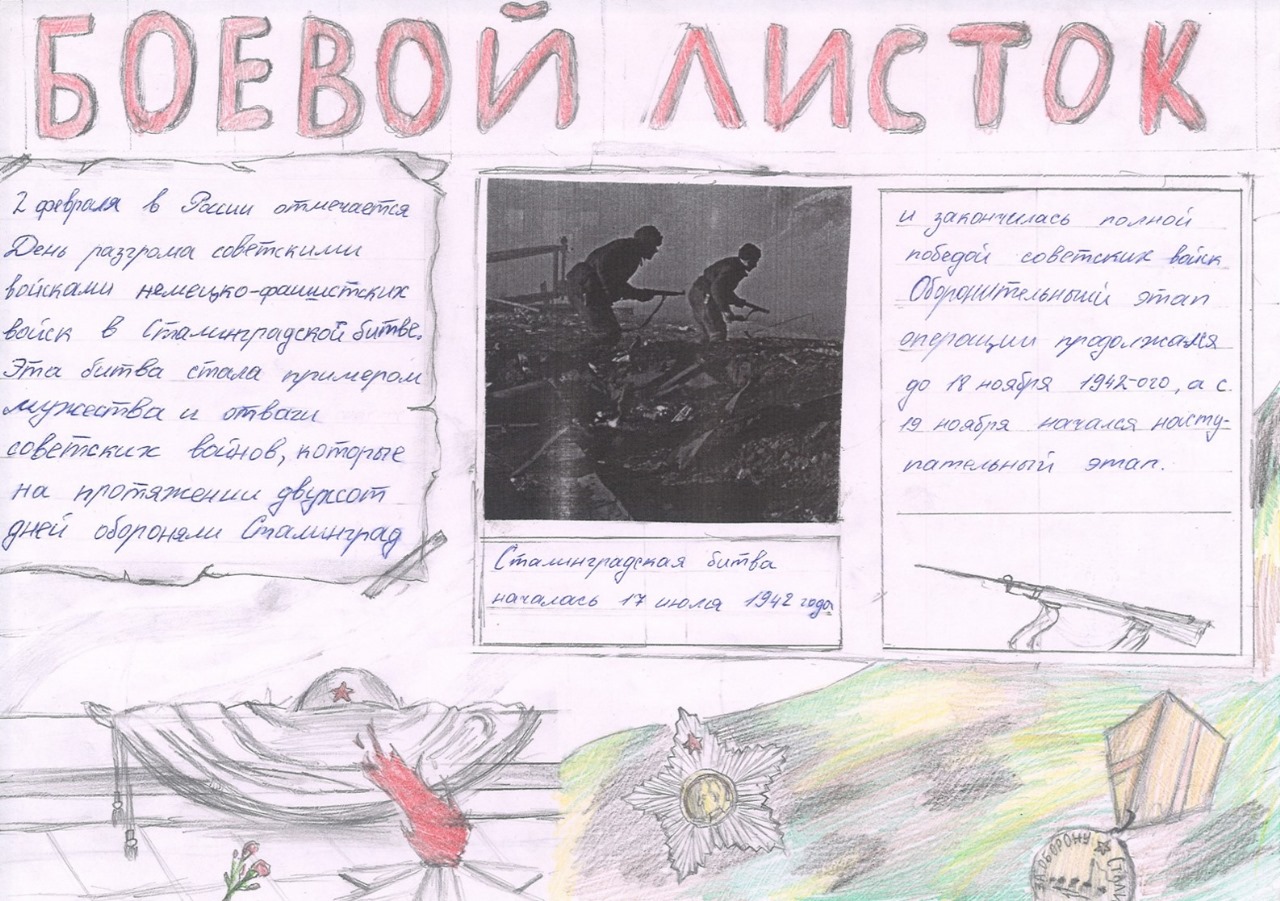 БОЕВОЙ ЛИСТОК
2 февраля в России отмечается
День разгрома советскими
войсками немецко-фашистских
войск в Сталинградской битве.
Эта битва стала примером
мужества и отваги
советских войнов, которые
на протяжении двухсот
дней обороняли Сталинград
Сталинградская битва
началась 17 июля 1942 года
и закончилась полной
победой советских войск
Оборонительный этап
операции продолжался
до 18 ноября 1942-ого, а с
19 ноября начался насту-
пательный этап.
ЗА ОБОРОНУ СТАЛИ